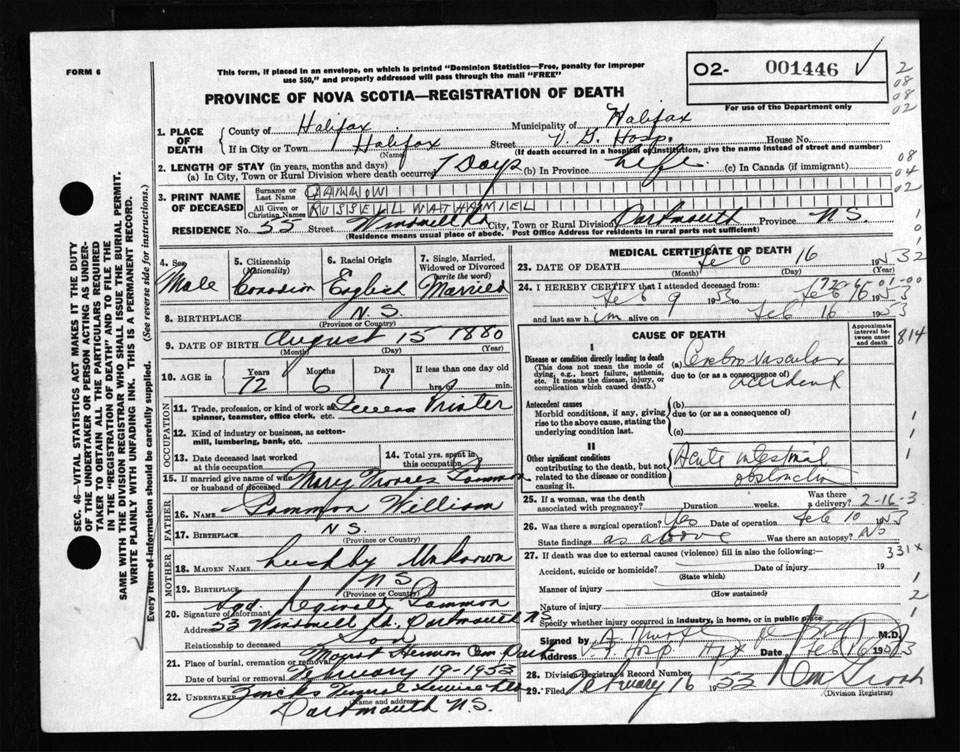 FORM 6
This form, if placed in an envelope, on which is printed "Dominion Statistics—Free, penalty for improper
use $50," and properly addressed will pass through the mail "FREE"
O2- 001446
For use of the Department only
2
08
08
02
PROVINCE OF NOVA SCOTIA—REGISTRATION OF DEATH
1. PLACE OF DEATH
County of Halifax Municipality of Halifax
If in City or Town Halifax Street V G. Hosp. House No.
(Name) (If death occurred in a hospital or institution, give the name instead of street and number)
2. LENGTH OF STAY (in years, months and days)
(a) In City, Town or Rural Division where death occurred 7 Days (b) In Province Life. (c) In Canada (if immigrant)
08
04
02
3. PRINT NAME OF DECEASED
Surname or Last Name
All Given or Christian Names RUSSELL NATHANIEL
RESIDENCE No. 55 Street Windmill Rd City, Town or Rural Division Dartmouth Province N.S.
(Residence means usual place of abode. Post Office Address for residents in rural parts not sufficient)
SEC. 46—VITAL STATISTICS ACT MAKES IT THE DUTY
OF THE UNDERTAKER OR PERSON ACTING AS UNDER-
TAKER TO OBTAIN ALL THE PARTICULARS REQUIRED
IN THE "REGISTRATION OF DEATH" AND TO FILE THE
SAME WITH THE DIVISION REGISTRAR WHO SHALL ISSUE THE BURIAL PERMIT.
WRITE PLAINLY WITH UNFADING INK. THIS IS A PERMANENT RECORD.
Every item of information should be carefully supplied. (See reverse side for instructions.)
4. Sex Male
5. Citizenship (Nationality) Canadian
6. Racial Origin English
7. Single, Married, Widowed or Divorced (write the word) Married
8. BIRTHPLACE N.S.
(Province or Country)
9. DATE OF BIRTH August 15 1880
(Month) (Day) (Year)
10. AGE in Years 72 Months 6 Days 1 If less than one day hrs. or min.
OCCUPATION
11. Trade, profession, or kind of work as spinner, teamster, office clerk, etc. Printer
12. Kind of industry or business, as cotton-mill, lumbering, bank, etc.
13. Date deceased last worked at this occupation
14. Total yrs. spent in this occupation
15. If married give name of wife or husband of deceased Mary Frances
FATHER
16. NAME William
17. BIRTHPLACE N.S.
(Province or Country)
MOTHER
18. MAIDEN NAME Unknown
19. BIRTHPLACE N S
(Province or Country)
20. Signature of informant Sgd. Reginald
Address 53 Windmill Rd. Dartmouth N S
Son
21. Place of burial, cremation or removal Mount Hermon Cem Dart
Date of burial or removal February 19-1953
22. UNDERTAKER Zincks Funeral Service Ltd
(Name and address)
Dartmouth N.S.
MEDICAL CERTIFICATE OF DEATH
23. DATE OF DEATH Feb 16 1953
(Month) (Day) (Year)
24. I HEREBY CERTIFY that I attended deceased from:
Feb 9 1953 to Feb 16 1953
and last saw him alive on Feb 16 1953
CAUSE OF DEATH
Approximate interval between onset and death
814
I
Disease or condition directly leading to death
(This does not mean the mode of dying, e.g., heart failure, asthenia, etc. It means the disease, injury, or complication which caused death.)
(a) Cerebro vascular
due to (or as a consequence of) accident
Antecedent causes
Morbid conditions, if any, giving rise to the above cause, stating the underlying condition last.
(b)
due to (or as a consequence of)
(c)
II
Other significant conditions
contributing to the death, but not related to the disease or condition causing it.
Acute intestinal
obstruction
25. If a woman, was the death associated with pregnancy? Duration weeks. Was there a delivery?
2-16-3
26. Was there a surgical operation? Yes Date of operation Feb 10 1953
State findings as above Was there an autopsy? No
27. If death was due to external causes (violence) fill in also the following:—
331x
Accident, suicide or homicide? Date of injury 19
(State which)
Manner of injury
(How sustained)
Nature of injury
Specify whether injury occurred in industry, in home, or in public place
Signed by M.D.
Address V. G. Hosp Hfx Date Feb 16 1953
28. Division Registrar's Record Number
29. Filed February 16 1953
(Division Registrar)